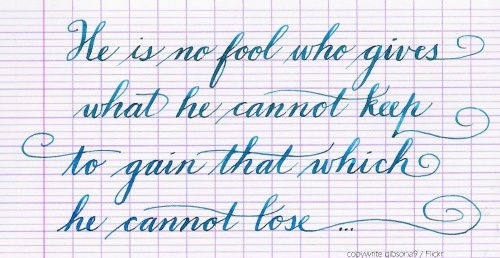 He is no fool who gives
what he cannot keep
to gain that which
he cannot lose ...
copywrite gibsona9 / Flickr